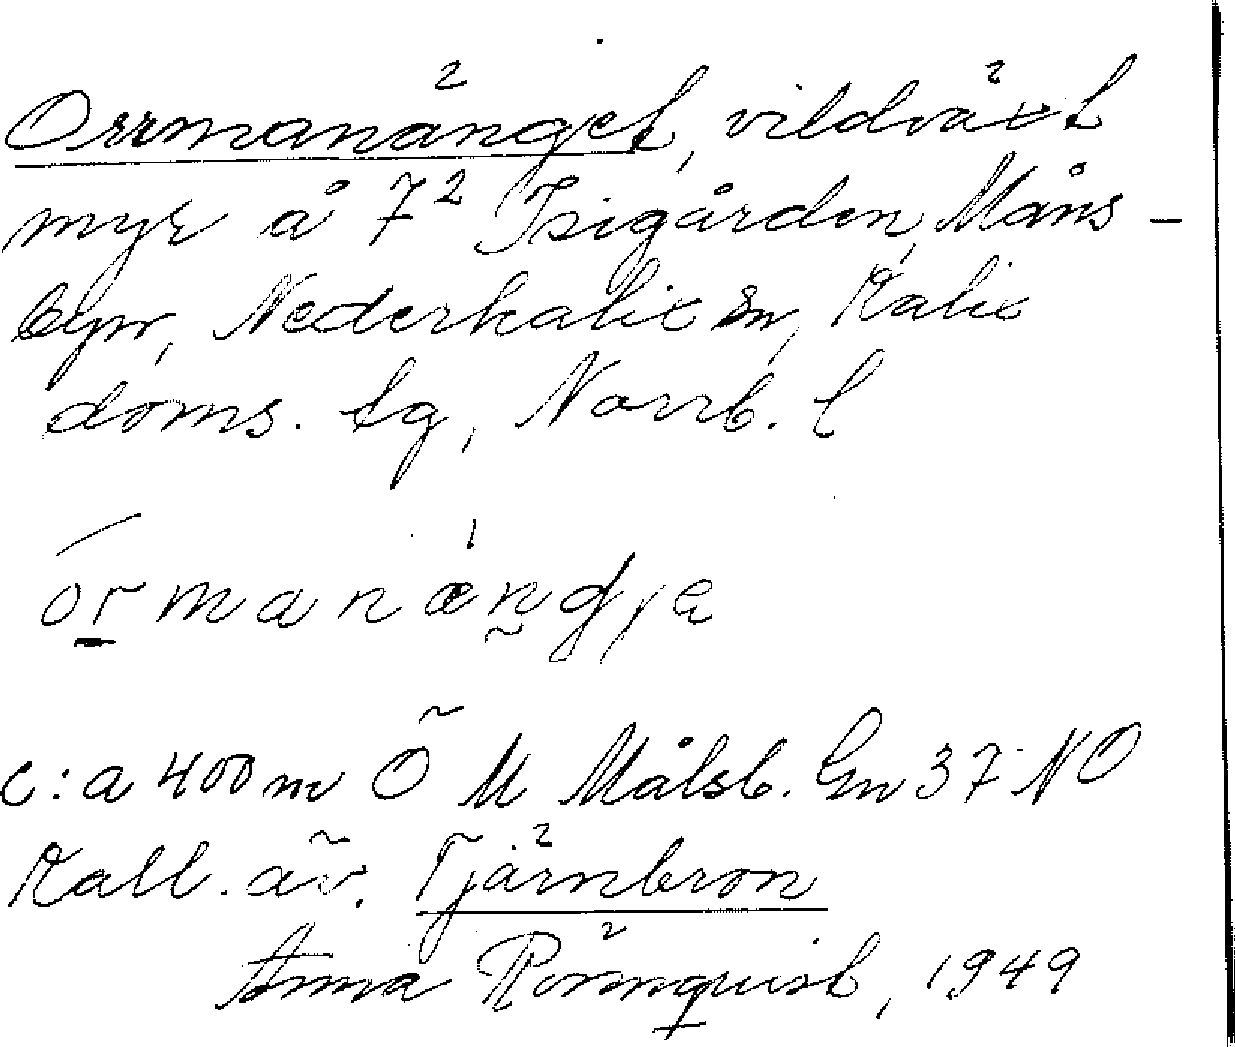 Orrmanänget, vildväxt
myr å 7² Isigården, Måns-
byn, Nederkalix sn, Kalix
doms. tg, Norrb. l
órmanængja
c:a 400 m Ö M Målsb. Gn 37 NO
Kall. äv. Tjärnbron
Anna Rönnquist, 1949